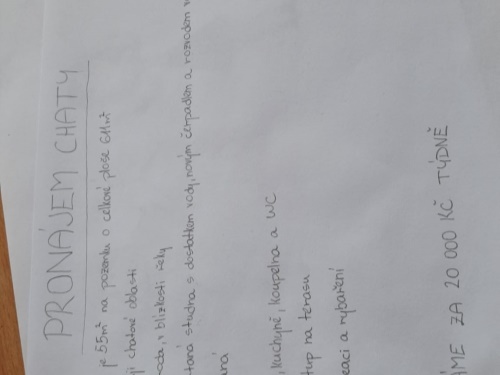 PRONÁJEM CHATY
je 55m² na pozemku o celkové ploše 611m²
chatové oblasti
v blízkosti řeky
studna s dostatkem vody, novým čerpadlem a rozvodem
kuchyně, koupelna a WC
na terasu
a rybaření
ZA 20 000 KČ TÝDNĚ